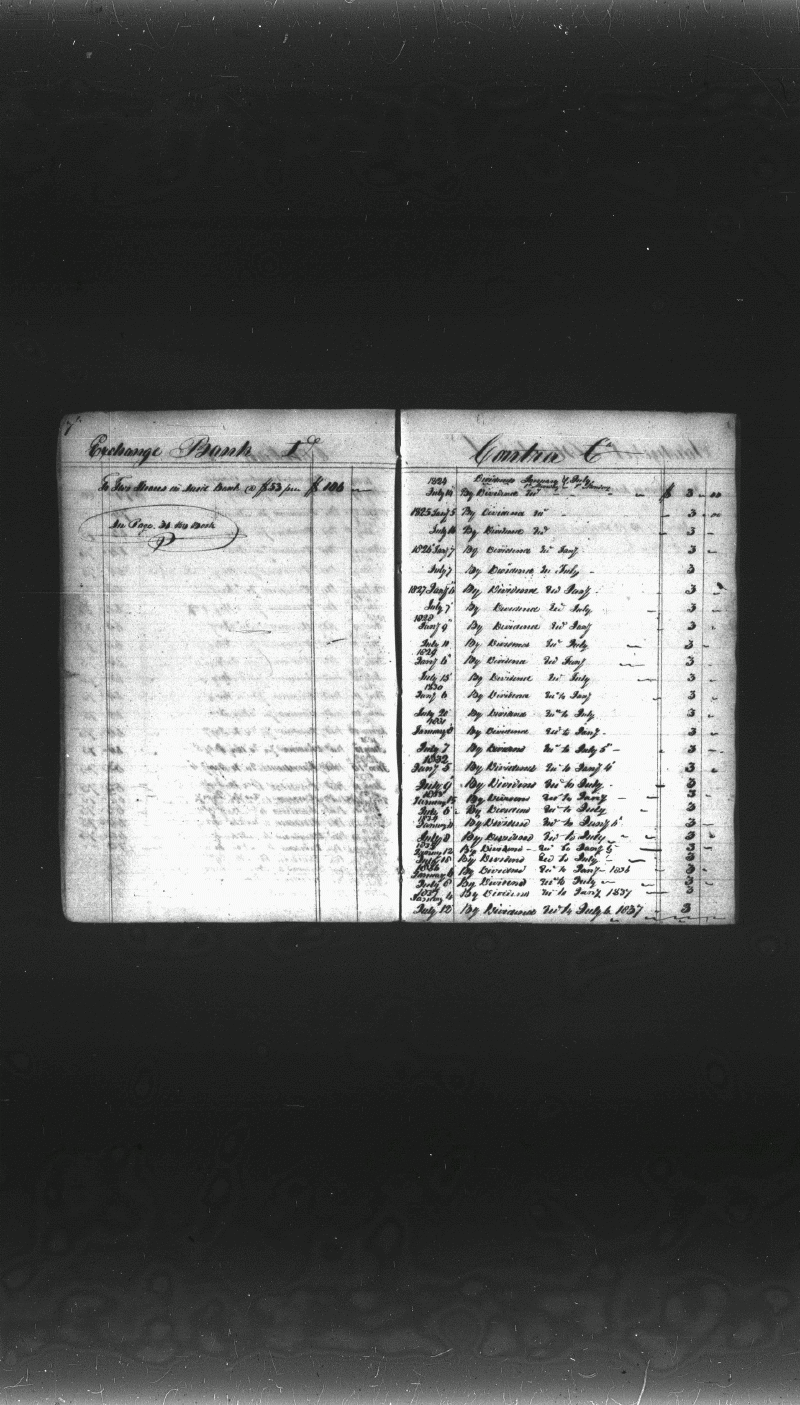 7
Exchange Bank Dr
To Two Shares in Bank @ $53 per $106 —
See Page. 31 this Book
Contra Cr
1824 Dividends January & July
July 14 By Dividend Recd $ 3 - 00
1825 Jany 5 By Dividend Recd 3 - 00
July By Dividend Recd 3 -
1826 Jany 7 By Dividend Recd Jany 3 -
July 7 By Dividend Recd July 3
1827 Jany 6 By Dividend Recd Jany 3 -
July 7 By Dividend Recd July 3
1828
Jany 9 By Dividend Recd Jany 3 -
July 11 By Dividend Recd July 3
1829
Jany 6 By Dividend Recd Jany 3 -
July 15 By Dividend Recd July 3
1830
Jany 6 By Dividend Recd to Jany 3
July 20 By Dividend Recd to July 3
1831
January 8 By Dividend Recd to Jany 3
July 7 By Dividend Recd to July 5 3
1832
Jany 5 By Dividend Recd to Jany 4 3
July 9 By Dividend Recd to July 3
January By Dividend Recd to Jany 3
July 6 By Dividend Recd to July 3
1834
January By Dividend Recd to Jany 6 3
July 8 By Dividend Recd to July 3
1835
January 12 By Dividend Recd to Jany 5 3
July 15 By Dividend Recd to July 3
1836
January 6 By Dividend Recd to Jany 1836 3
July 6 By Dividend Recd to July 3
1837
January 4 By Dividend Recd to Jany 1837 3
July 12 By Dividend Recd to July 1837 3